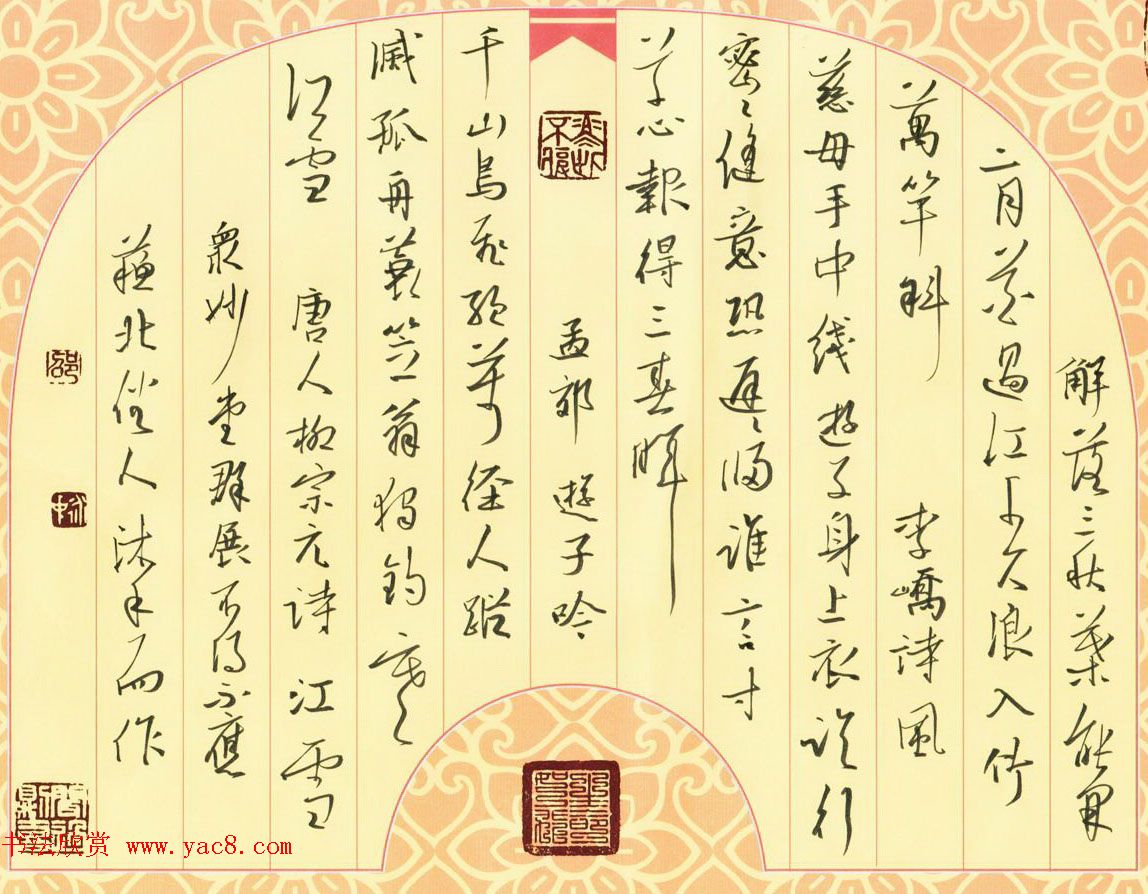 解落三秋葉能開
二月花過江千尺浪入竹
萬竿斜 李嶠詩風
慈母手中线遊子身上衣临行
密密縫意恐遲遲歸誰言寸
草心報得三春暉
孟郊 遊子吟
千山鳥飛絕萬径人踪
滅孤舟蓑笠翁獨钓寒
江雪 唐人柳宗元詩 江雪
眾妙堂群展不得不應
蘇北俗人沐手而作
书法欣赏 www.yac8.com